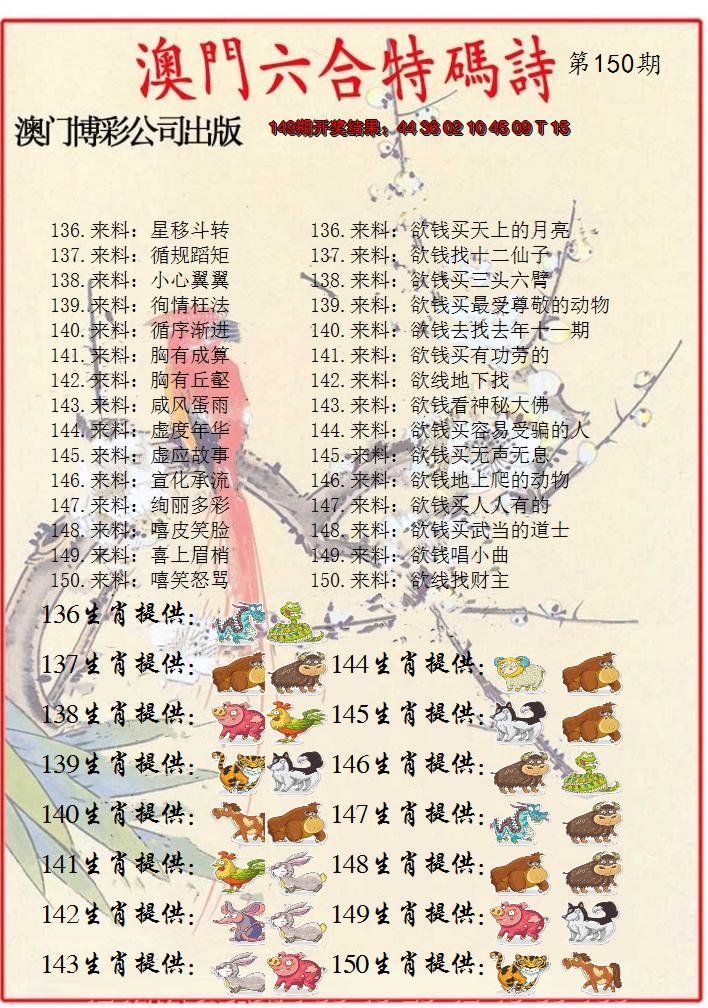 澳門六合特碼詩 第150期
澳门博彩公司出版 149期开奖结果：44 36 02 10 45 09 T 15
136.来料：星移斗转 136.来料：欲钱买天上的月亮
137.来料：循规蹈矩 137.来料：欲钱找十二仙子
138.来料：小心翼翼 138.来料：欲钱买三头六臂
139.来料：徇情枉法 139.来料：欲钱买最受尊敬的动物
140.来料：循序渐进 140.来料：欲钱去找去年十一期
141.来料：胸有成算 141.来料：欲钱买有功劳的
142.来料：胸有丘壑 142.来料：欲线地下找
143.来料：咸风蛋雨 143.来料：欲钱看神秘大佛
144.来料：虚度年华 144.来料：欲钱买容易受骗的人
145.来料：虚应故事 145.来料：欲钱买无声无息
146.来料：宣化承流 146.来料：欲钱地上爬的动物
147.来料：绚丽多彩 147.来料：欲钱买人人有的
148.来料：嘻皮笑脸 148.来料：欲钱买武当的道士
149.来料：喜上眉梢 149.来料：欲钱唱小曲
150.来料：嘻笑怒骂 150.来料：欲线找财主
136生肖提供：
137生肖提供： 144生肖提供：
138生肖提供： 145生肖提供：
139生肖提供： 146生肖提供：
140生肖提供： 147生肖提供：
141生肖提供： 148生肖提供：
142生肖提供： 149生肖提供：
143生肖提供： 150生肖提供：